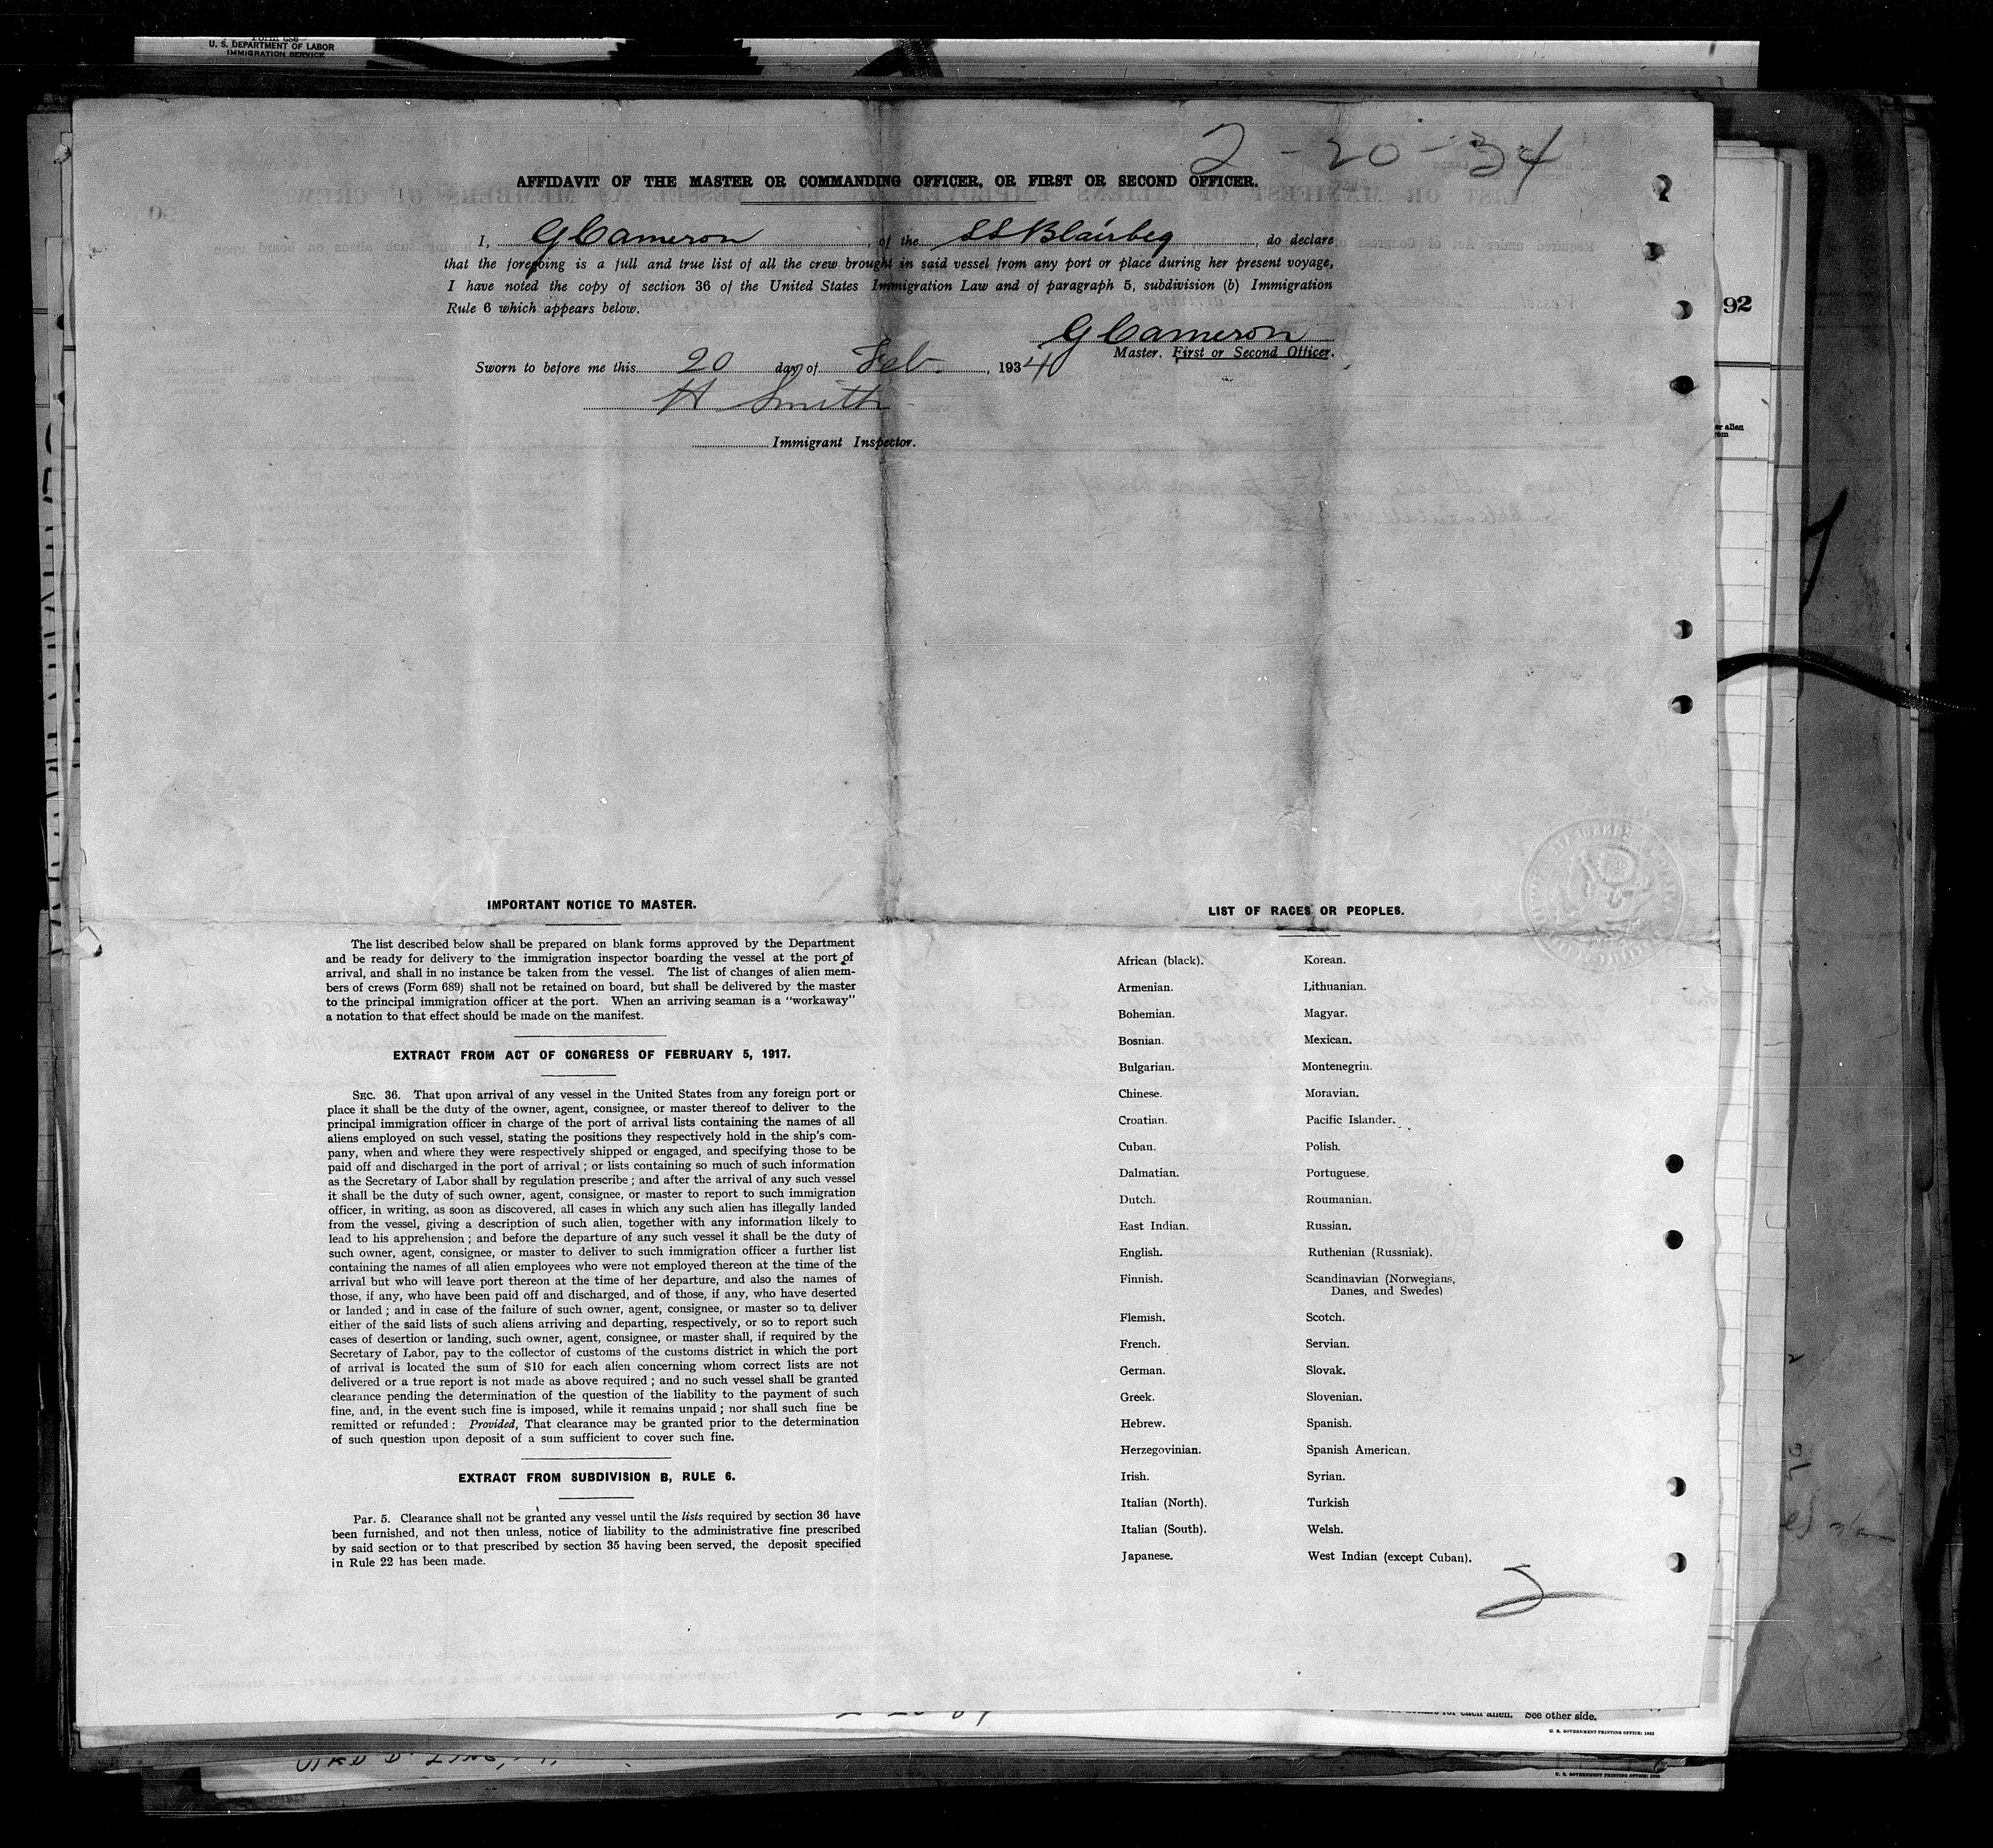 Form 680
U. S. DEPARTMENT OF LABOR
IMMIGRATION SERVICE
2-20-34
AFFIDAVIT OF THE MASTER OR COMMANDING OFFICER, OR FIRST OR SECOND OFFICER.
I, G Cameron, of the SS Blairbeg, do declare
that the foregoing is a full and true list of all the crew brought in said vessel from any port or place during her present voyage,
I have noted the copy of section 36 of the United States Immigration Law and of paragraph 5, subdivision (b) Immigration
Rule 6 which appears below.
G Cameron
Master, First or Second Officer.
Sworn to before me this 20 day of Feb., 1934
H Smith
Immigrant Inspector.
92
IMPORTANT NOTICE TO MASTER.
The list described below shall be prepared on blank forms approved by the Department
and be ready for delivery to the immigration inspector boarding the vessel at the port of
arrival, and shall in no instance be taken from the vessel. The list of changes of alien mem-
bers of crews (Form 689) shall not be retained on board, but shall be delivered by the master
to the principal immigration officer at the port. When an arriving seaman is a "workaway"
a notation to that effect should be made on the manifest.
EXTRACT FROM ACT OF CONGRESS OF FEBRUARY 5, 1917.
SEC. 36. That upon arrival of any vessel in the United States from any foreign port or
place it shall be the duty of the owner, agent, consignee, or master thereof to deliver to the
principal immigration officer in charge of the port of arrival lists containing the names of all
aliens employed on such vessel, stating the positions they respectively hold in the ship's com-
pany, when and where they were respectively shipped or engaged, and specifying those to be
paid off and discharged in the port of arrival; or lists containing so much of such information
as the Secretary of Labor shall by regulation prescribe; and after the arrival of any such vessel
it shall be the duty of such owner, agent, consignee, or master to report to such immigration
officer, in writing, as soon as discovered, all cases in which any such alien has illegally landed
from the vessel, giving a description of such alien, together with any information likely to
lead to his apprehension; and before the departure of any such vessel it shall be the duty of
such owner, agent, consignee, or master to deliver to such immigration officer a further list
containing the names of all alien employees who were not employed thereon at the time of the
arrival but who will leave port thereon at the time of her departure, and also the names of
those, if any, who have been paid off and discharged, and of those, if any, who have deserted
or landed; and in case of the failure of such owner, agent, consignee, or master so to deliver
either of the said lists of such aliens arriving and departing, respectively, or so to report such
cases of desertion or landing, such owner, agent, consignee, or master shall, if required by the
Secretary of Labor, pay to the collector of customs of the customs district in which the port
of arrival is located the sum of $10 for each alien concerning whom correct lists are not
delivered or a true report is not made as above required; and no such vessel shall be granted
clearance pending the determination of the question of the liability to the payment of such
fine, and, in the event such fine is imposed, while it remains unpaid; nor shall such fine be
remitted or refunded: Provided, That clearance may be granted prior to the determination
of such question upon deposit of a sum sufficient to cover such fine.
EXTRACT FROM SUBDIVISION B, RULE 6.
Par. 5. Clearance shall not be granted any vessel until the lists required by section 36 have
been furnished, and not then unless, notice of liability to the administrative fine prescribed
by said section or to that prescribed by section 35 having been served, the deposit specified
in Rule 22 has been made.
LIST OF RACES OR PEOPLES.
African (black).
Armenian.
Bohemian.
Bosnian.
Bulgarian.
Chinese.
Croatian.
Cuban.
Dalmatian.
Dutch.
East Indian.
English.
Finnish.
Flemish.
French.
German.
Greek.
Hebrew.
Herzegovinian.
Irish.
Italian (North).
Italian (South).
Japanese.
Korean.
Lithuanian.
Magyar.
Mexican.
Montenegrin.
Moravian.
Pacific Islander.
Polish.
Portuguese.
Roumanian.
Russian.
Ruthenian (Russniak).
Scandinavian (Norwegians,
Danes, and Swedes)
Scotch.
Servian.
Slovak.
Slovenian.
Spanish.
Spanish American.
Syrian.
Turkish
Welsh.
West Indian (except Cuban).
2
for each alien. See other side.
U. S. GOVERNMENT PRINTING OFFICE:
U. S. GOVERNMENT PRINTING OFFICE: